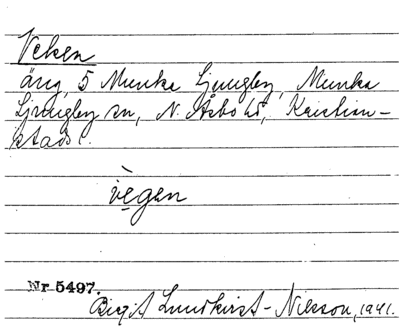 Veken
äng, 5 Munka Ljungby, Munka
Ljungby sn, N. Åsbo hd, Kristian-
stads l.
vègen
Nr 5497.
Birgit Lundkvist-Nilsson, 1941.